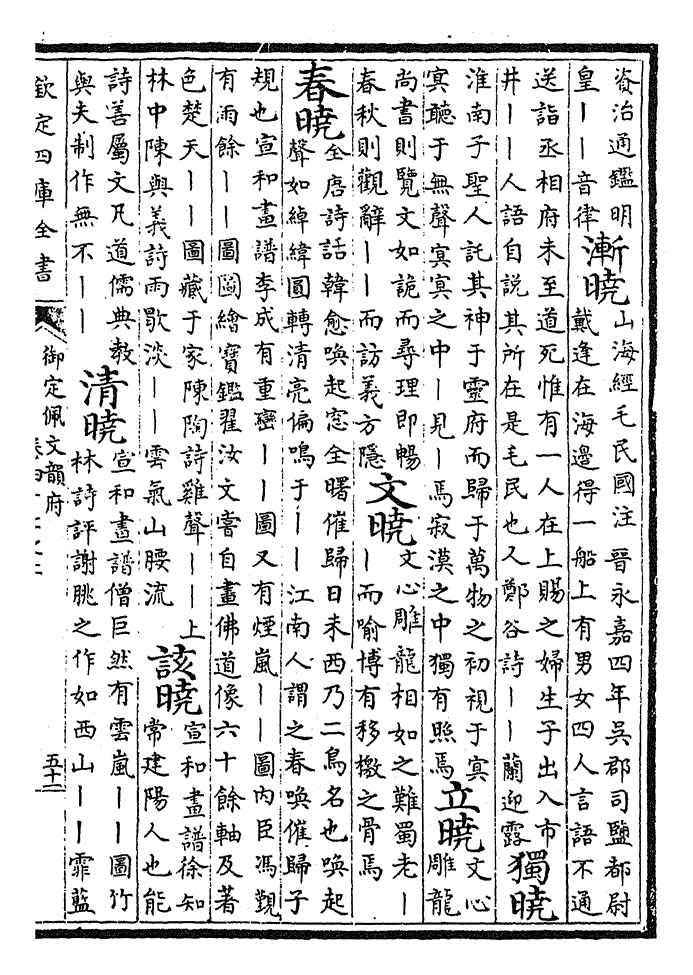 資治通鑑明
皇丨丨音律
漸曉
山海經毛民國注晉永嘉四年吳郡司鹽都尉
戴逢在海邊得一船上有男女四人言語不通
送詣丞相府未至道死惟有一人在上賜之婦生子出入市
井丨丨人語自說其所在是毛民也又鄭谷詩丨丨蘭迎露
獨曉
淮南子聖人託其神于靈府而歸于萬物之初視于冥
冥聽于無聲冥冥之中丨見丨焉寂漠之中獨有照焉
立曉
文心
雕龍
尚書則覽文如詭而尋理即暢
春秋則觀辭丨丨而訪義方隱
文曉
文心雕龍相如之難蜀老丨
丨而喻博有移檄之骨焉
春曉
全唐詩話韓愈喚起窓全曙催歸日未西乃二鳥名也喚起
聲如綽緯圓轉清亮偏鳴于丨丨江南人謂之春喚催歸子
規也宣和畫譜李成有重巒丨丨圖又有煙嵐丨丨圖內臣馮覲
有雨餘丨丨圖圖繪寶鑑翟汝文嘗自畫佛道像六十餘軸及著
色楚天丨丨圖藏于家陳陶詩雞聲丨丨上
林中陳與義詩雨歇淡丨丨雲氣山腰流
該曉
宣和畫譜徐知
常建陽人也能
詩善屬文凡道儒典教
與夫制作無不丨丨
清曉
宣和畫譜僧巨然有雲嵐丨丨圖竹
林詩評謝朓之作如西山丨丨霏藍
欽定四庫全書
御定佩文韻府
五十二